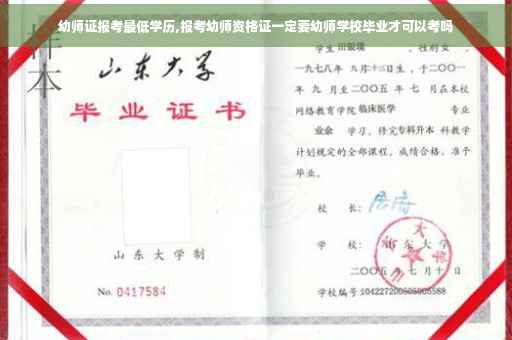 幼师证报考最低学历,报考幼师资格证一定要幼师学校毕业才可以考吗
样本
山东大学
毕业证书
山东大学制
No. 0417584
学生
性别女，
一九七八年 九月十二日生，于二〇〇一
年 九 月至二〇〇五 年 七 月在本校
网络教育学院临床医学 专业
业余 学习，修完专科升本 科教学
计划规定的全部课程，成绩合格，准予
毕业。
校 长：
学 校：山东大学
二〇〇五 年 七 月 十 日
学校编号:104227200505005588